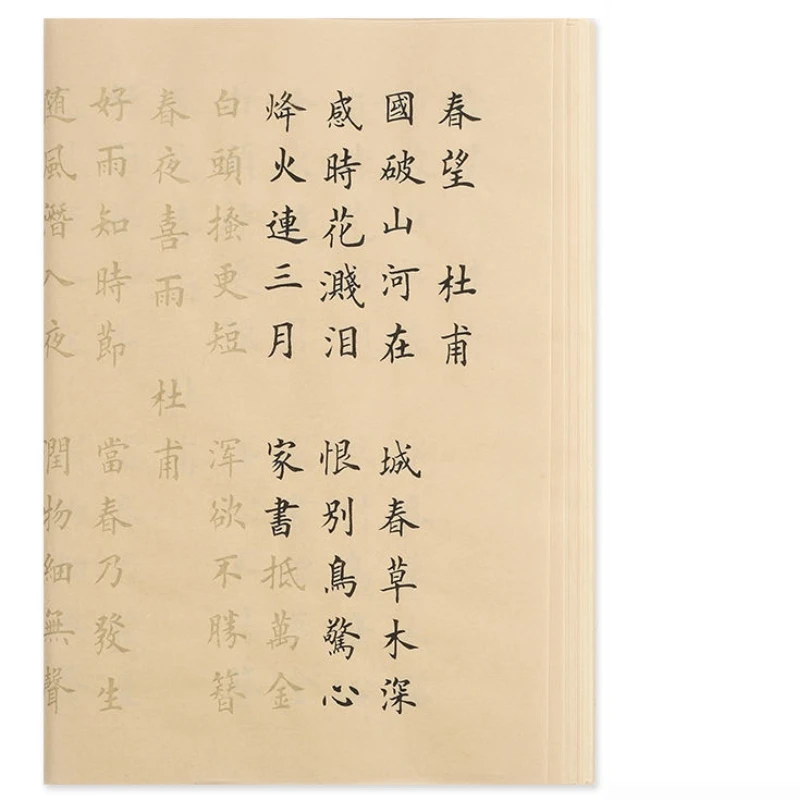 春望 杜甫
國破山河在 城春草木深
感時花濺泪 恨别鳥驚心
烽火連三月 家書抵萬金
白頭搔更短 浑欲不勝簪
春夜喜雨 杜甫
好雨知時節 當春乃發生
随風潛入夜 潤物細無聲